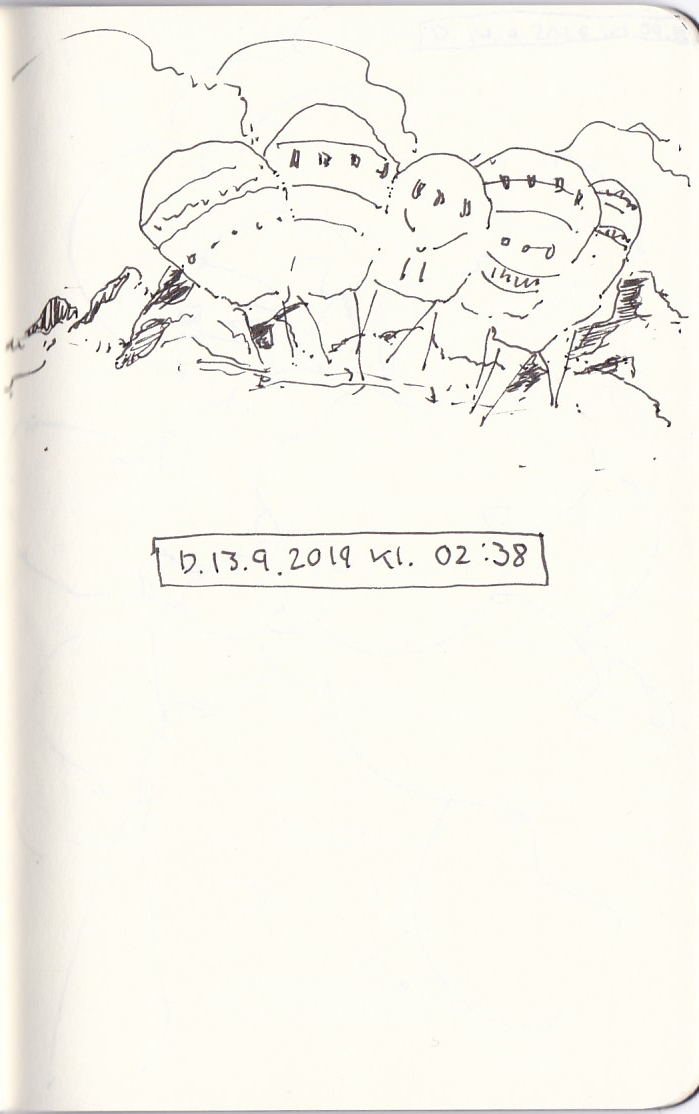 D.13.9.2019 Kl. 02:38